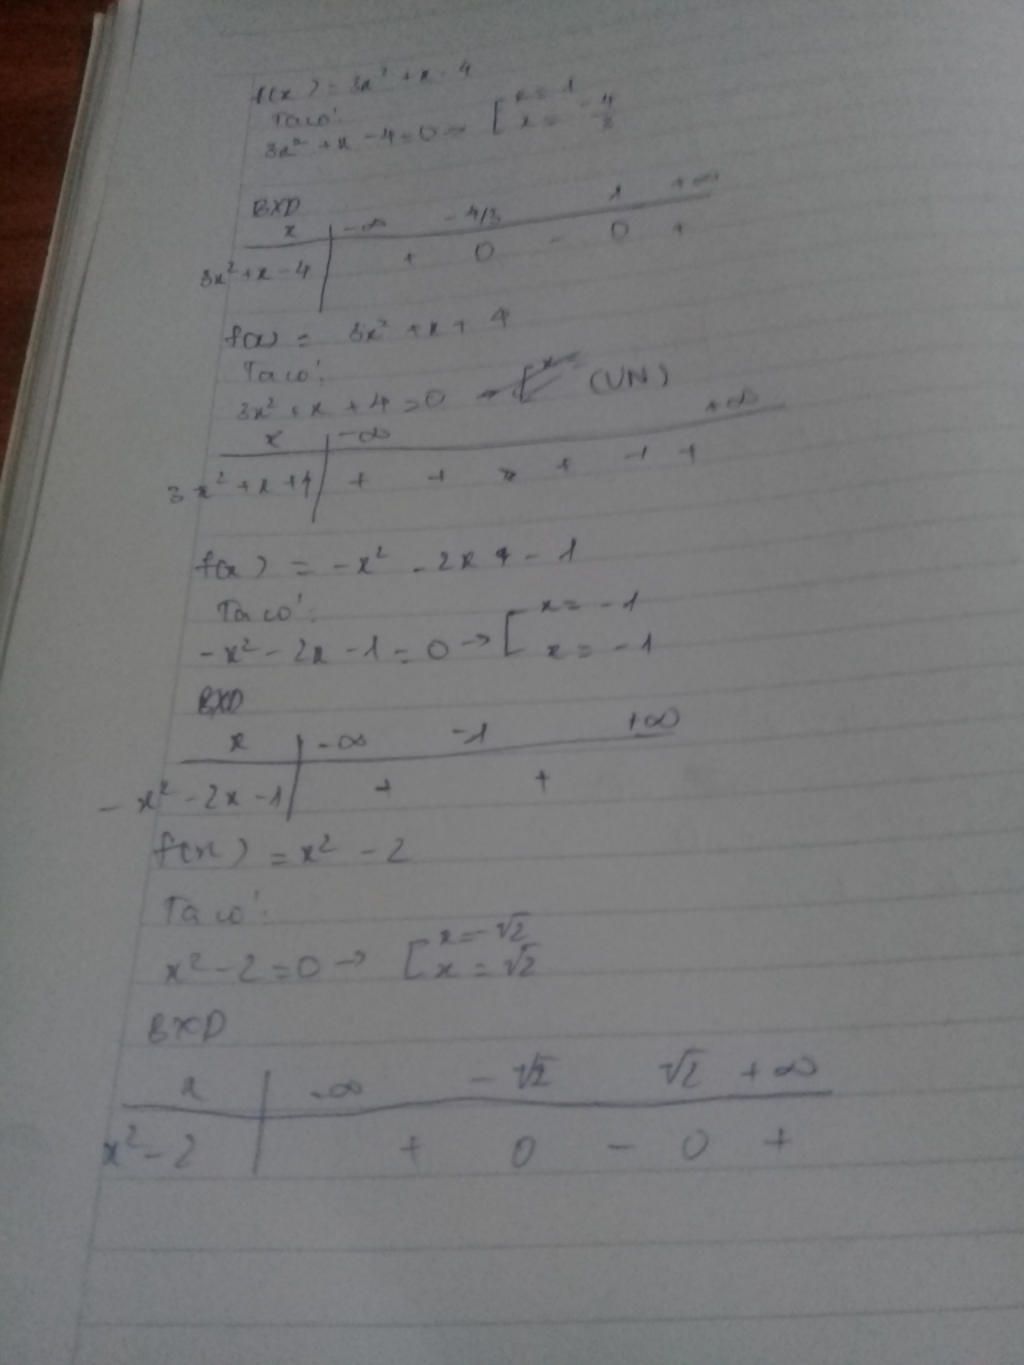 f(x) = 3x² + x - 4
Ta có:
3x² + x - 4 = 0 → [ x = 1
x = -4/3
BXD
x | -∞ -4/3 1 +∞
3x² + x - 4 | + 0 - 0 +
f(x) = 3x² + x + 4
Ta có:
3x² + x + 4 = 0 → (VN)
x | -∞ +∞
3x² + x + 4 | + + + + +
f(x) = -x² - 2x - 1
Ta có:
-x² - 2x - 1 = 0 → [ x = -1
x = -1
BXD
x | -∞ -1 +∞
-x² - 2x - 1 | + +
f(x) = x² - 2
Ta có:
x² - 2 = 0 → [ x = -√2
x = √2
BXD
x | -∞ -√2 √2 +∞
x² - 2 | + 0 - 0 +